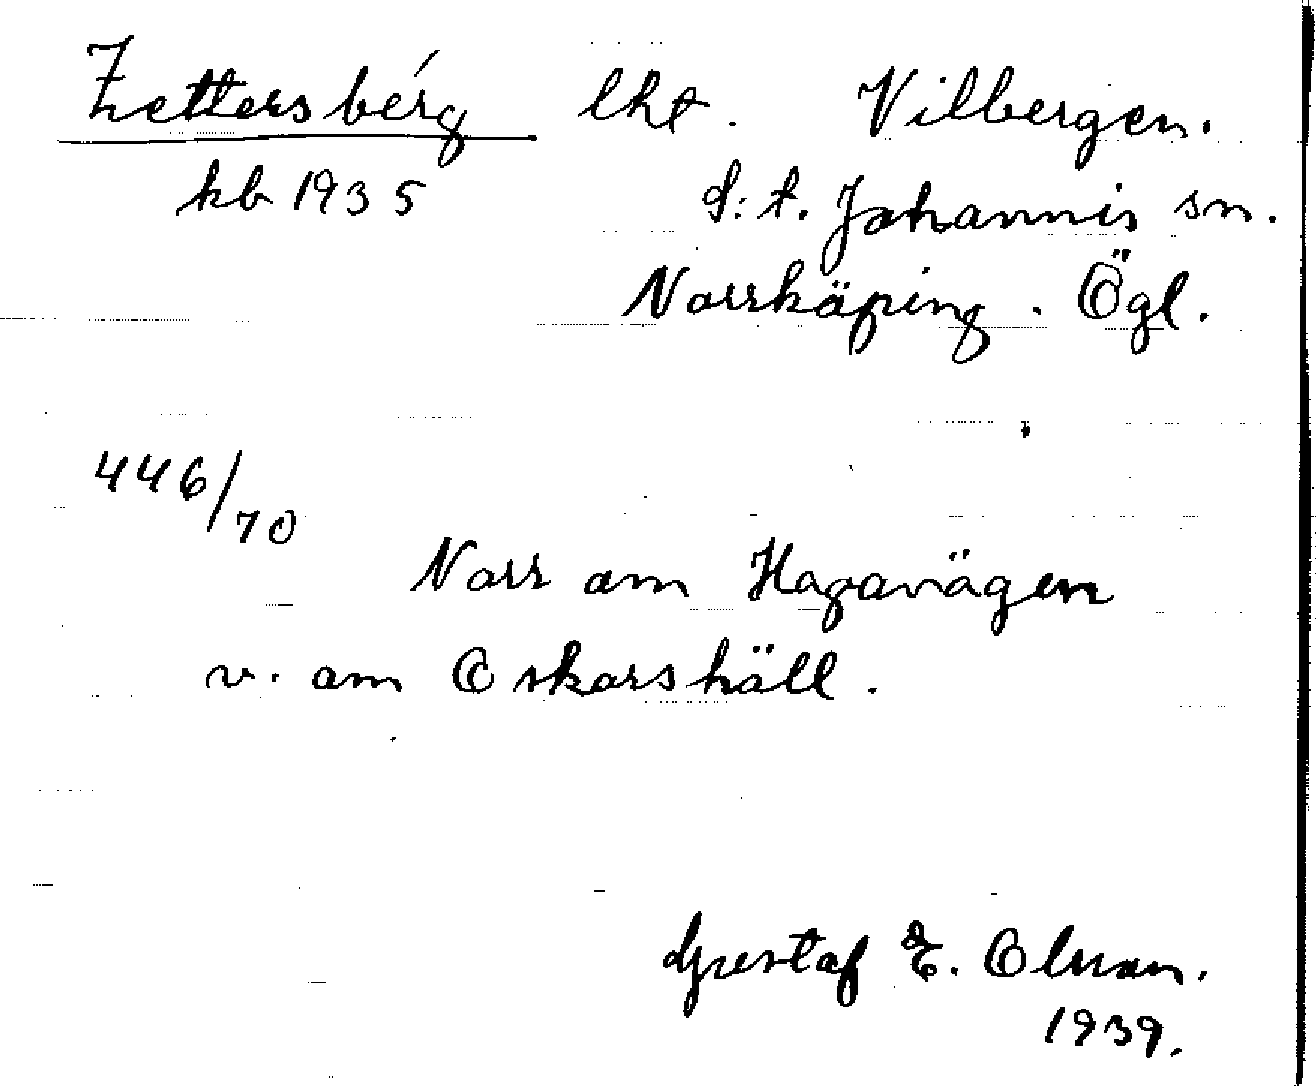 Zettersbérg lht. Vilbergen.
kb 1935 S:t. Johannis sn.
Norrköping. Ögl.
446/70
Norr om Hagavägen
v. om Oskarshäll.
Gustaf E. Olman.
1939.